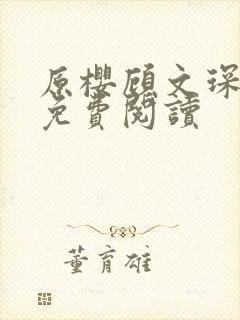 原櫻顧文琛
免費閱讀
董育雄